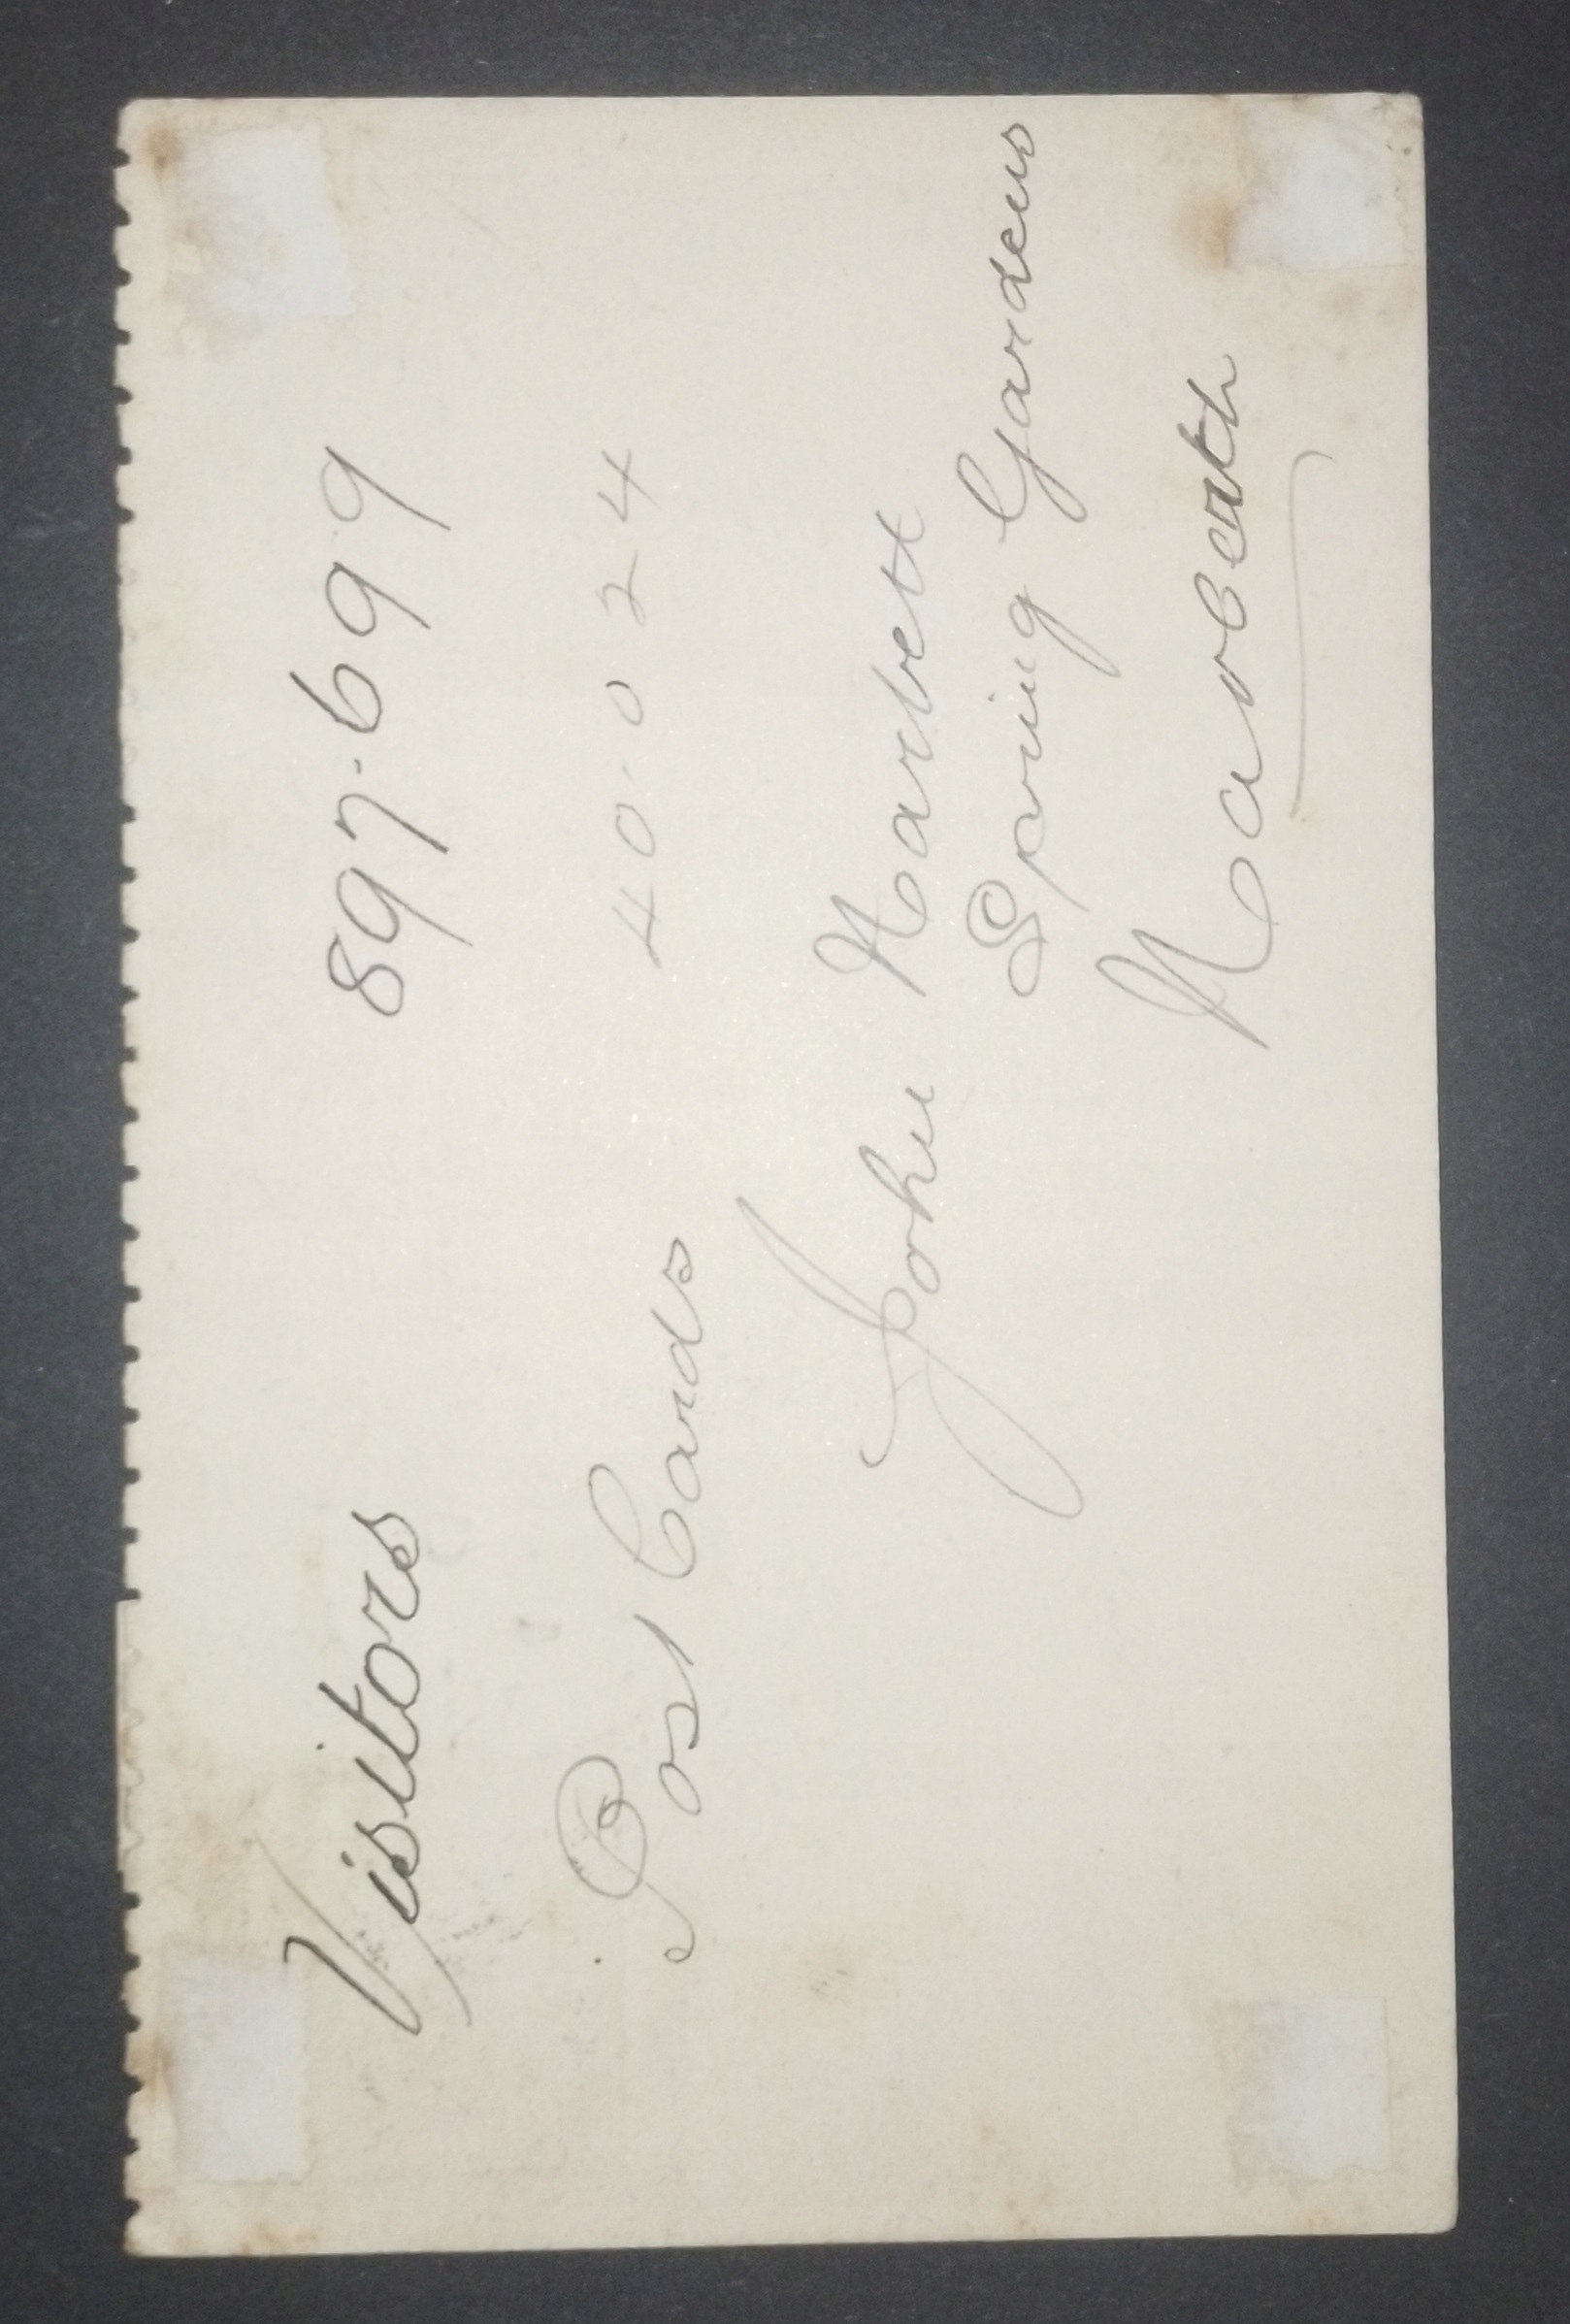 Visitors 897.699
Post Cards 40.024
John Narbett
Spring Gardens
Narberth